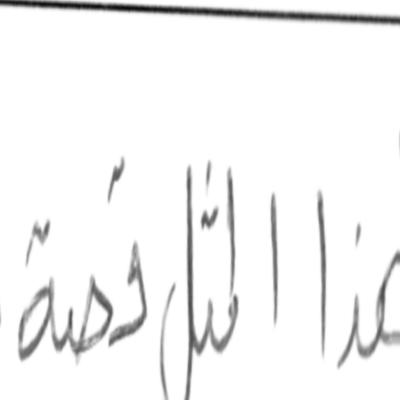 هذا المثل قصة